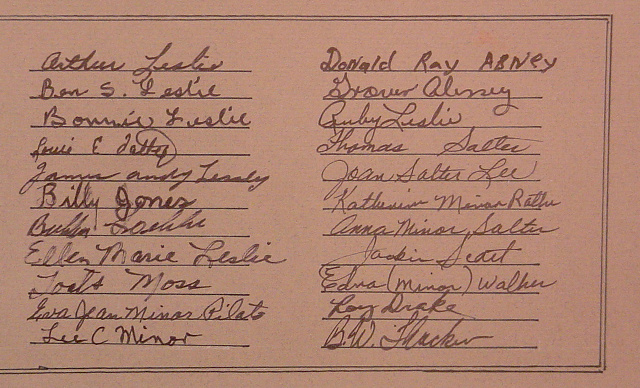 Arthur Leslie
Ben S. Leslie
Bonnie Leslie
Louie E
James andy
Billy Jones
Ellen Marie Leslie
Moss
Eva Jean Minor Pilato
Lee C Minor
Donald Ray ABNey
Grover
Ruby Leslie
Thomas Salter
Joan Salter Lee
Katherine Minor
Anna Minor Salter
Jackie
Edna (Minor) Walker
Loy Drake
B.W. Thacker